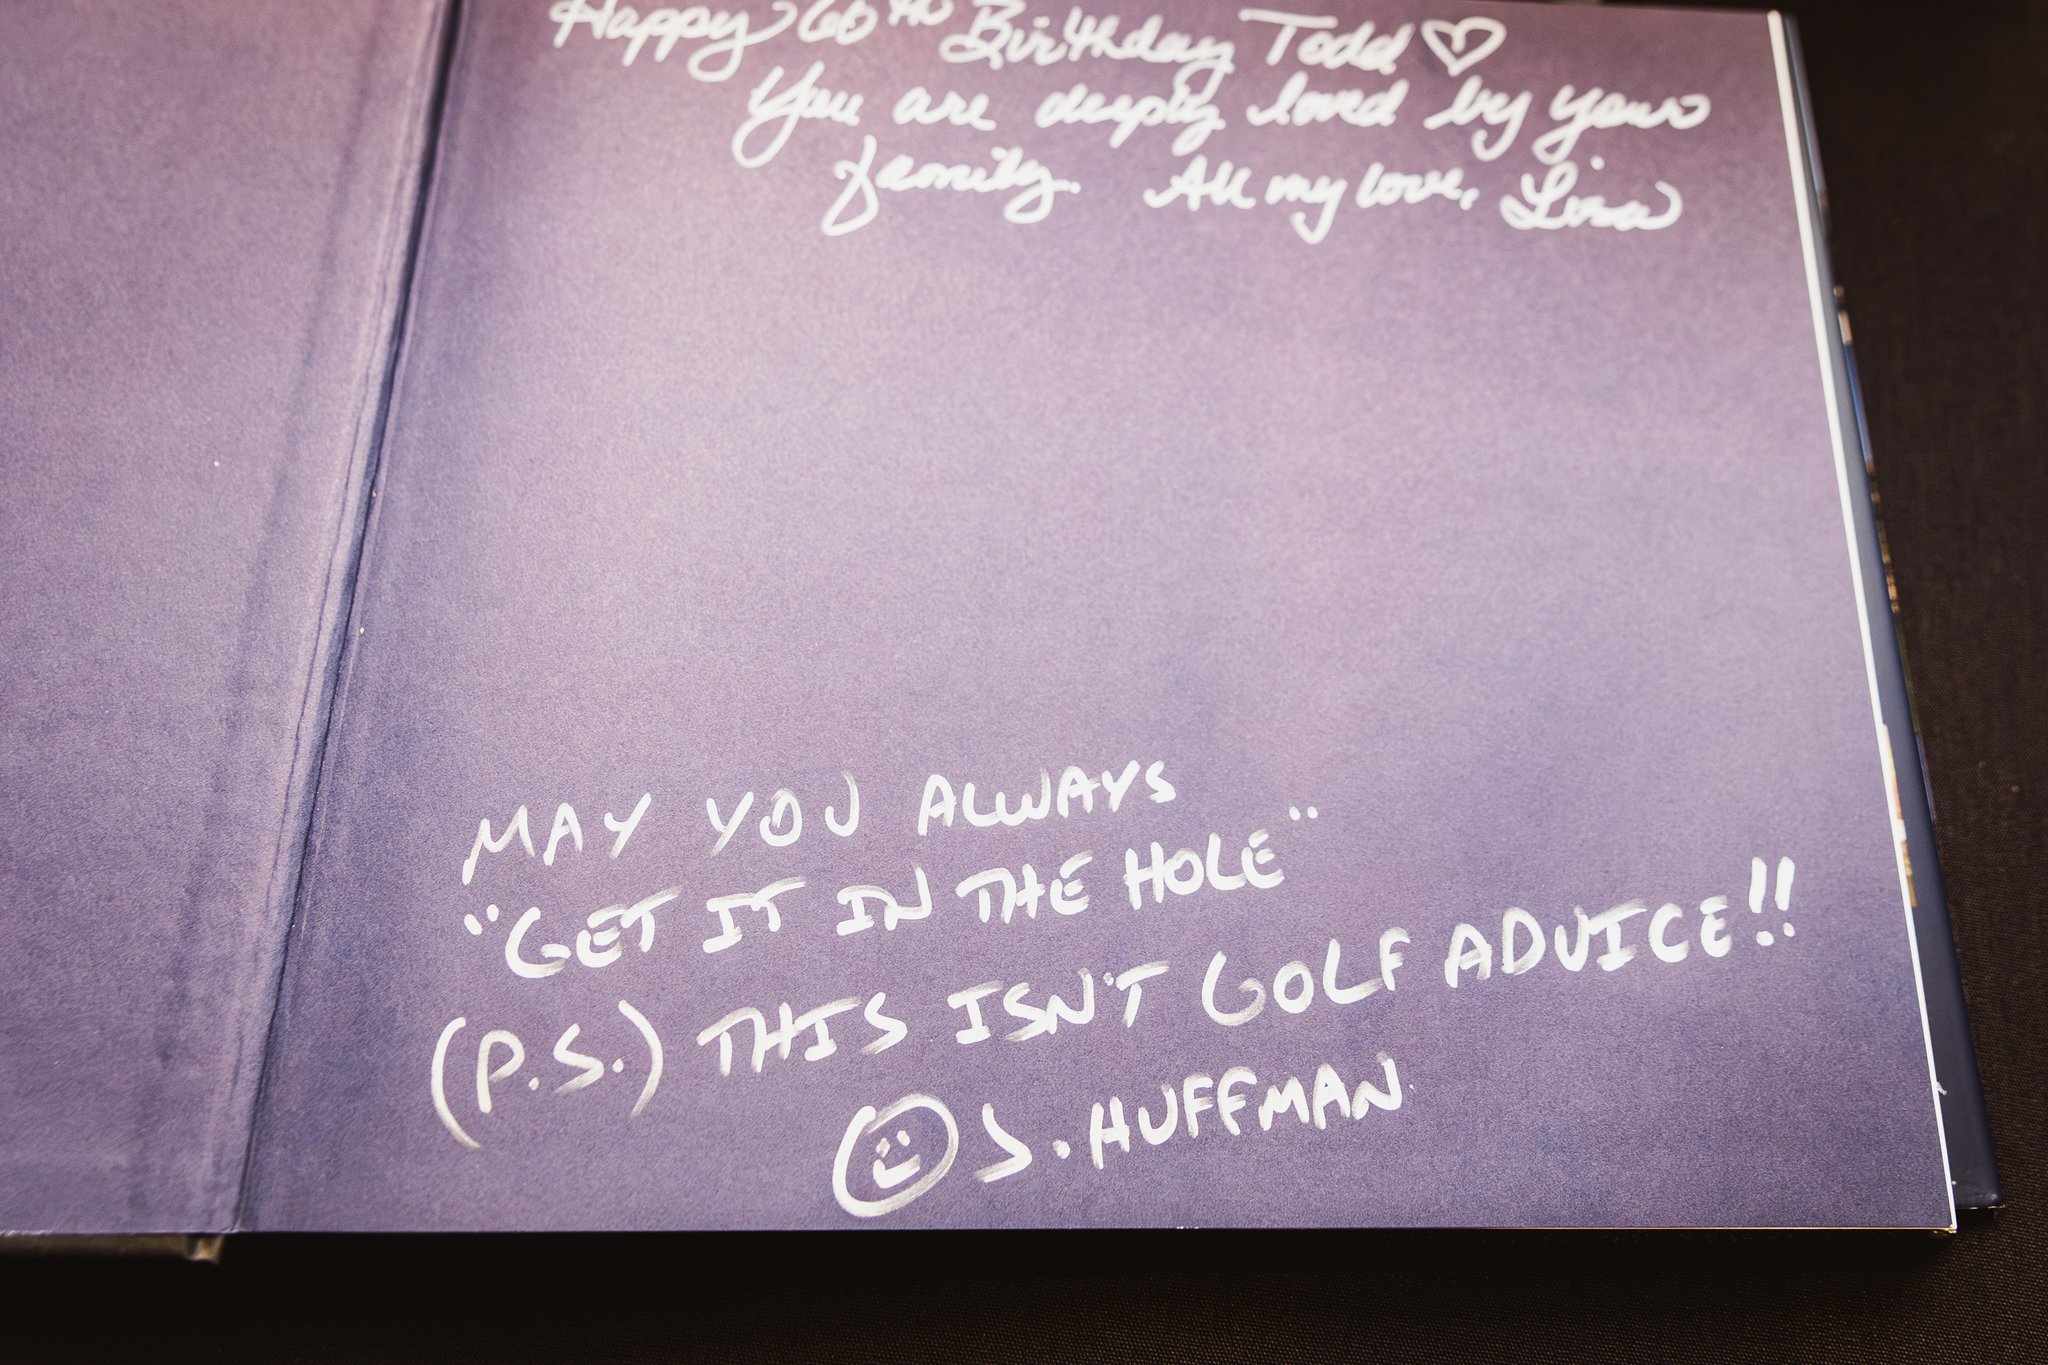 Happy 60th Birthday Todd ♡
You are deeply loved by your
family. All my love, Lisa
MAY YOU ALWAYS
"GET IT IN THE HOLE"
(P.S.) THIS ISN'T GOLF ADVICE!!
☺ J. HUFFMAN